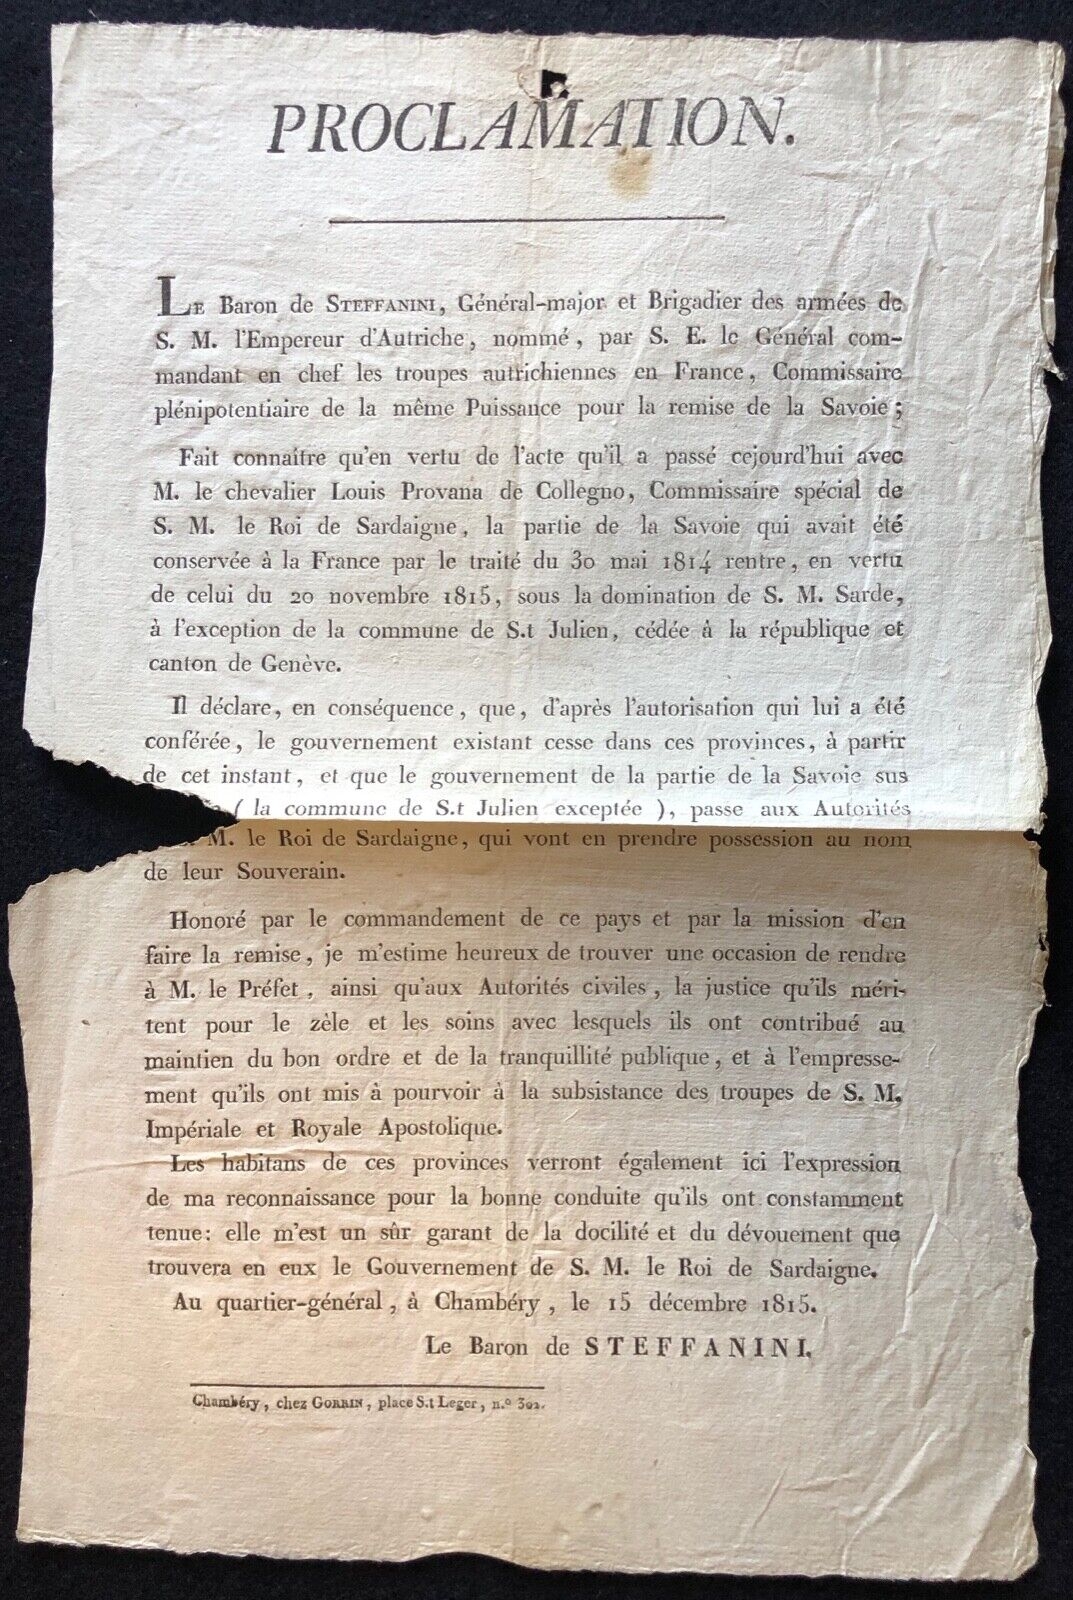 PROCLAMATION.
LE Baron de STEFFANINI, Général-major et Brigadier des armées de
S. M. l'Empereur d'Autriche, nommé, par S. E. le Général com-
mandant en chef les troupes autrichiennes en France, Commissaire
plénipotentiaire de la même Puissance pour la remise de la Savoie;
Fait connaître qu'en vertu de l'acte qu'il a passé cejourd'hui avec
M. le chevalier Louis Provana de Collegno, Commissaire spécial de
S. M. le Roi de Sardaigne, la partie de la Savoie qui avait été
conservée à la France par le traité du 30 mai 1814 rentre, en vertu
de celui du 20 novembre 1815, sous la domination de S. M. Sarde,
à l'exception de la commune de S.t Julien, cédée à la république et
canton de Genève.
Il déclare, en conséquence, que, d'après l'autorisation qui lui a été
conférée, le gouvernement existant cesse dans ces provinces, à partir
de cet instant, et que le gouvernement de la partie de la Savoie sus
(la commune de S.t Julien exceptée), passe aux Autorités
M. le Roi de Sardaigne, qui vont en prendre possession au nom
de leur Souverain.
Honoré par le commandement de ce pays et par la mission d'en
faire la remise, je m'estime heureux de trouver une occasion de rendre
à M. le Préfet, ainsi qu'aux Autorités civiles, la justice qu'ils méri-
tent pour le zèle et les soins avec lesquels ils ont contribué au
maintien du bon ordre et de la tranquillité publique, et à l'empresse-
ment qu'ils ont mis à pourvoir à la subsistance des troupes de S. M.
Impériale et Royale Apostolique.
Les habitans de ces provinces verront également ici l'expression
de ma reconnaissance pour la bonne conduite qu'ils ont constamment
tenue: elle m'est un sûr garant de la docilité et du dévouement que
trouvera en eux le Gouvernement de S. M. le Roi de Sardaigne.
Au quartier-général, à Chambéry, le 15 décembre 1815.
Le Baron de STEFFANINI.
Chambéry, chez GORRIN, place S.t Leger, n.º 302.